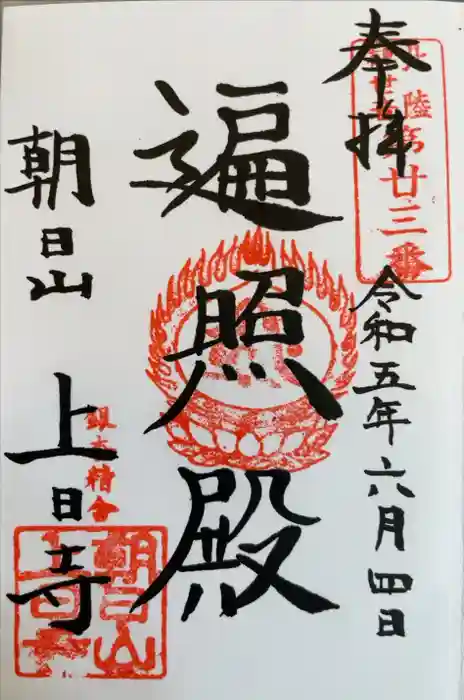 奉拝
陸第廿三番
令和五年六月四日
遍照殿
朝日山
上日寺
朝日山
上日寺